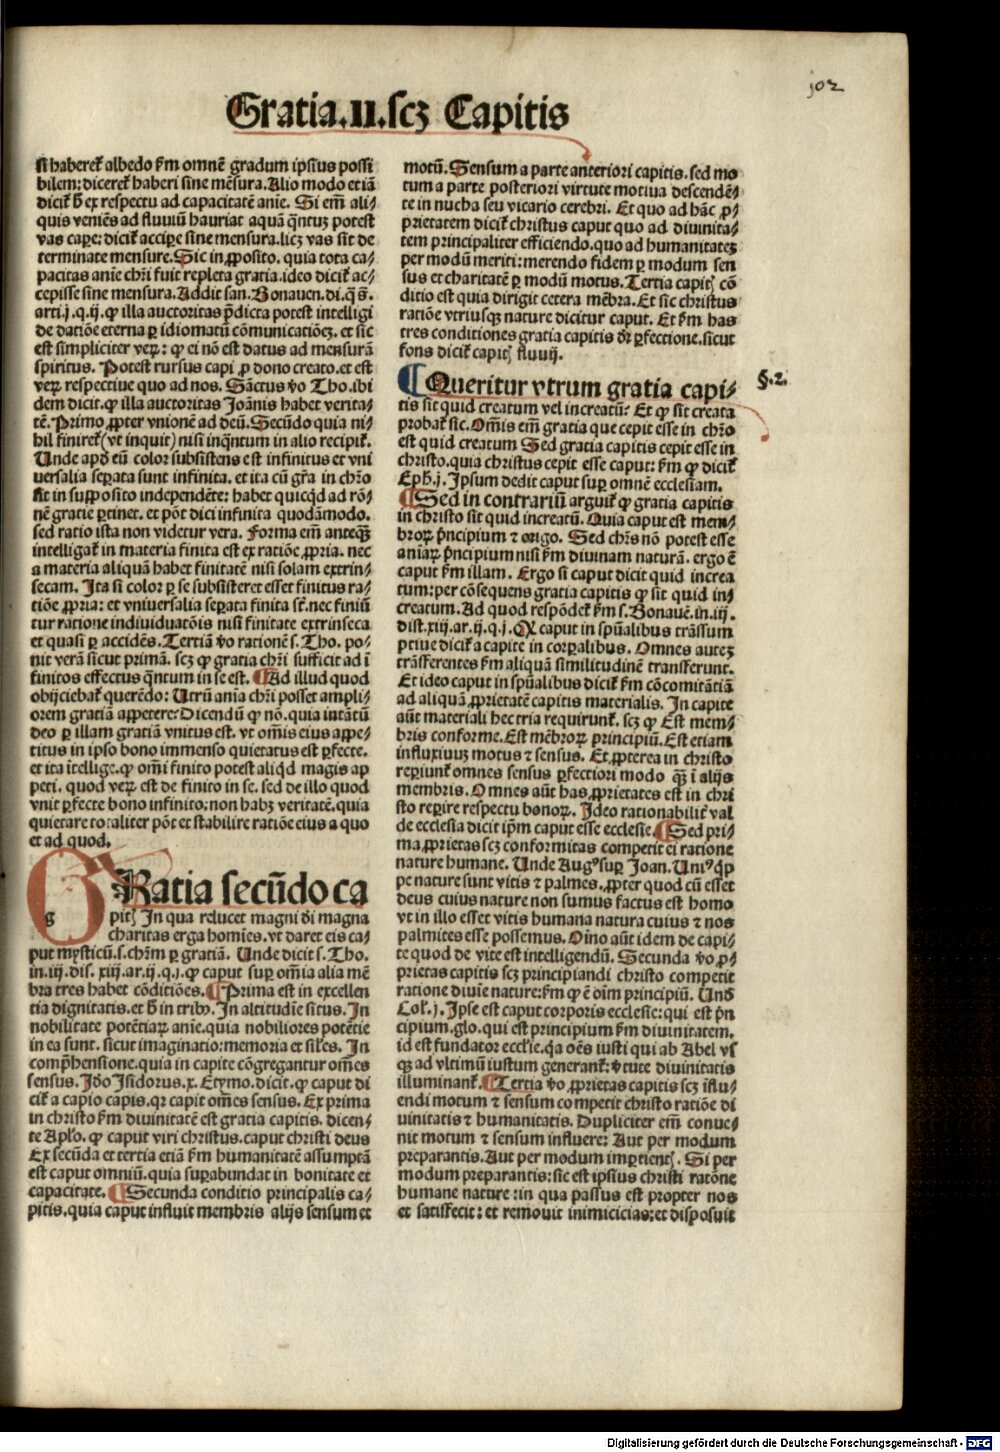 102
Gratia.II.scꝫ Capitis
si haberet̄ albedo ẜm omnē gradum ipsius possi
bilem: diceret̄ haberi sine mēsura. Alio modo et iā
dicit̄ h̄ ex respectu ad capacitatē anie. Si em̄ ali⸗
quis veniēs ad fluuiū hauriat aquā qn̄tuꝫ potest
vas caꝑe: dicit̄ acciꝑe sine mensura. licꝫ vas sit de
terminate mensure. Sic in ꝓposito. quia tota ca⸗
pacitas anie chr̄i fuit repleta gratia. ideo dicit̄ ac⸗
cepisse sine mensura. Addit san. Bonauen. di. q̄ s̄.
arti.j.q.ij. ꝙ illa auctoritas p̄dicta potest intelligi
de datiōe eterna ꝑ idiomatū cōmunicatiōeꝫ. et sic
est simpliciter veꝝ: ꝙ ei nō est datus ad mensurā
spiritus. Potest rursus capi ꝓ dono creato. et est
veꝝ respectiue quo ad nos. Sāctus v̄o Tho. ibi
dem dicit. ꝙ illa auctoritas Joānis habet verita⸗
tē. Primo ꝓpter vnionē ad deū. Secūdo quia ni⸗
hil finiret̄ (vt inquit) nisi inqn̄tum in alio recipit̄.
Unde apd̓ eū color subsistens est infinitus et vni
uersalia seꝑata sunt infinita. et ita cū gr̄a in chr̄o
sit in supposito independēte: habet quicqd̓ ad rō⸗
nē gratie ꝑtinet. et pōt dici infinita quodāmodo.
sed ratio ista non videtur vera. Forma em̄ anteqꝫ̄
intelligat̄ in materia finita est ex ratiōe ꝓpria. nec
a materia aliquā habet finitatē nisi solam extrin⸗
secam. Ita si color ꝑ se subsisteret esset finitus ra⸗
tiōe ꝓpria: et vniuersalia seꝑata finita sēt. nec finiū
tur ratione indiuiduatōis nisi finitate extrinseca
et quasi ꝑ accidēs. Tertiā v̄o rationē s. Tho. po⸗
nit verā sicut primā. scꝫ ꝙ gratia chr̄i sufficit ad ī
finitos effectus qn̄tum in se est. ¶Ad illud quod
obijciebat̄ querēdo: Utrū anīa chr̄i posset ampli⸗
orem gratiā appetere: Dicendū ꝙ nō. quia intātū
deo ꝑ illam gratiā vnitus est. vt om̄is eius appe⸗
titus in ipso bono immenso quietatus est ꝑfecte.
et ita ītellige. ꝙ om̄i finito potest aliqd̓ magis ap
peti. quod veꝝ est de finito in se. sed de illo quod
vnit ꝑfecte bono infinito: non habꝫ veritatē. quia
quietare totaliter pōt et stabilire ratiōe eius a quo
et ad quod.
GRatia secūdo ca
g
pitꝭ In qua relucet magni di magna
charitas erga homīes. vt daret eis ca⸗
put mysticū. s. chr̄m ꝑ gratiā. Unde dicit s. Tho.
in.iij. dis. xiij. ar.ij.q.j. ꝙ caput suꝑ om̄ia alia mē
bra tres habet cōditiōes. ¶Prima est in excellen
tia dignitatis. et h̄ in tribꝰ. In altitudīe situs. In
nobilitate potētiaꝝ anie. quia nobiliores potētie
in ea sunt. sicut imaginatio: memoria et sil̓es. In
comp̄hensione. quia in capite cōgregantur om̄es
sensus. Jdeo Jsidorus. x. Etymo. dicit. ꝙ caput di
cit̄ a capio capis. qr capit om̄es sensus. Ex prima
in christo ẜm diuinitatē est gratia capitis. dicen⸗
te Apl̓o. ꝙ caput viri christus. caput christi deus
Ex secūda et tertia etiā ẜm humanitatē assumptā
est caput omniū. quia suꝑabundat in bonitate et
capacitate. ¶Secunda conditio principalis ca⸗
pitis. quia caput influit membris alijs sensum et
motū. Sensum a parte anteriori capitis. sed mo
tum a parte posteriori virtute motiua descendē⸗
te in nucha seu vicario cerebri. Et quo ad hāc ꝓ⸗
prietatem dicit̄ christus caput quo ad diuinita⸗
tem principaliter efficiendo. quo ad humanitateꝫ
per modū meriti: merendo fidem ꝑ modum sen
sus et charitatē ꝑ modū motus. Tertia capitꝭ cō
ditio est quia dirigit cetera mēbra. Et sic christus
ratiōe vtriusqꝫ nature dicitur caput. Et ẜm has
tres conditiones gratia capitis dr̄ ꝑfectione. sicut
fons dicit̄ capitꝭ fluuij.
¶Queritur vtrum gratia capi⸗
§.2.
tis sit quid creatum vel increatū: Et ꝙ sit creata
probat̄ sic. Om̄is em̄ gratia que cepit esse in chr̄o
est quid creatum Sed gratia capitis cepit esse in
christo. quia christus cepit esse caput: ẜm ꝙ dicit̄
Eph̓.j. Ipsum dedit caput suꝑ omnē ecclesiam.
¶Sed in contrariū arguit̄ ꝙ gratia capitis
in christo sit quid increatū. Quia caput est mem⸗
broꝝ p̄ncipium ⁊ origo. Sed chr̄s nō potest esse
aniaꝝ p̄ncipium nisi ẜm diuinam naturā. ergo ē
caput ẜm illam. Ergo si caput dicit quid increa
tum: per cōsequens gratia capitis ꝙ sit quid in⸗
creatum. Ad quod respōdet̄ ẜm s. Bonauē. in.iij.
dist.xiij.ar.ij.q.j. Q caput in spūalibus trāssum
ptiue dicit̄ a capite in corꝑalibus. Omnes auteꝫ
trāsferentes ẜm aliquā similitudinē transferunt.
Et ideo caput in spūalibus dicit̄ ẜm cōcomitātiā
ad aliquā ꝓprietatē capitis materialis. In capite
aūt materiali hec tria requirunt̄. scꝫ ꝙ Est mem⸗
bris conforme. Est mēbroꝝ principiū. Est etiam
influxiuuꝫ motus ⁊ sensus. Et ꝓpterea in christo
reꝑiunt̄ omnes sensus ꝑfectiori modo qꝫ̄ ī alijs
membris. Omnes aūt has ꝓprietates est in chri
sto reꝑire respectu bonoꝝ. Jdeo rationabilit̓ val
de ecclesia dicit ip̄m caput esse ecclesie. ¶Sed pri⸗
ma ꝓprietas scꝫ conformitas competit ei ratione
nature humane. Unde Augꝰ suꝑ Joan. Uniꝰ qͥp
pe nature sunt vitis ⁊ palmes. ꝓpter quod cū esset
deus cuius nature non sumus factus est homo
vt in illo esset vitis humana natura cuius ⁊ nos
palmites esse possemus. Oīno aūt idem de capi⸗
te quod de vite est intelligendū. Secunda v̄o ꝓ⸗
prietas capitis scꝫ principiandi christo competit
ratione diuīe nature: ẜm ꝙ ē oīm principiū. Und̓
Col̓.j. Jpse est caput corporis ecclesie: qui est p̄n
cipium. glo. qui est principium ẜm diuinitatem.
id est fundator eccl̓ie. qͣ oēs iusti qui ab Abel vsͥ
qꝫ ad vltimū iustum generant̄: v̓tute diuinitatis
illuminant̄. ¶Tertia v̄o ꝓprietas capitis scꝫ īflu⸗
endi motum ⁊ sensum competit christo ratiōe di
uinitatis ⁊ humanitatis. Dupliciter em̄ conue⸗
nit motum ⁊ sensum influere: Aut per modum
preparantis. Aut per modum imꝑtientꝭ. Si per
modum preparantis: sic est ipsius christi ratōne
humane nature: in qua passus est propter nos
et satisfecit: et remouit inimicicias: et disposuit
Digitalisierung gefördert durch die Deutsche Forschungsgemeinschaft - DFG